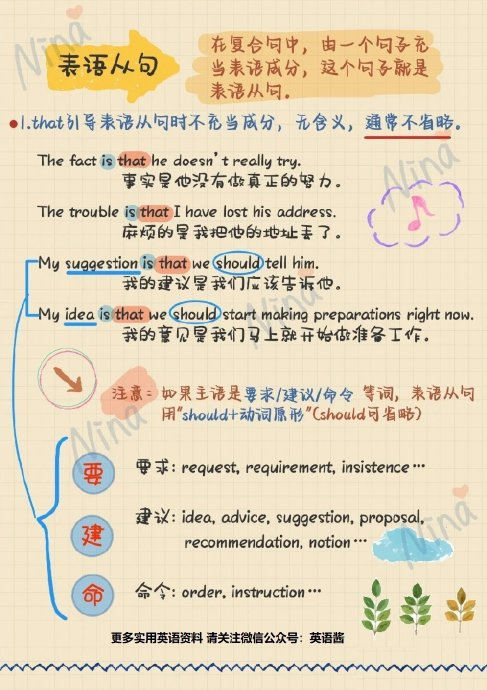 Nina
表语从句
在复合句中，由一个句子充
当表语成分，这个句子就是
表语从句.
1.that引导表语从句时不充当成分，无含义，通常不省略。
The fact is that he doesn't really try.
事实是他没有做真正的努力。
Nina
The trouble is that I have lost his address.
麻烦的是我把他的地址丢了。
My suggestion is that we should tell him.
我的建议是我们应该告诉他。
My idea is that we should start making preparations right now.
我的意见是我们马上就开始做准备工作。
注意：如果主语是要求/建议/命令 等词，表语从句
用"should+动词原形"(should可省略)
Nina
要
要求: request, requirement, insistence…
建
建议: idea, advice, suggestion, proposal,
recommendation, notion…
Nina
命
命令: order. instruction…
更多实用英语资料 请关注微信公众号：英语酱